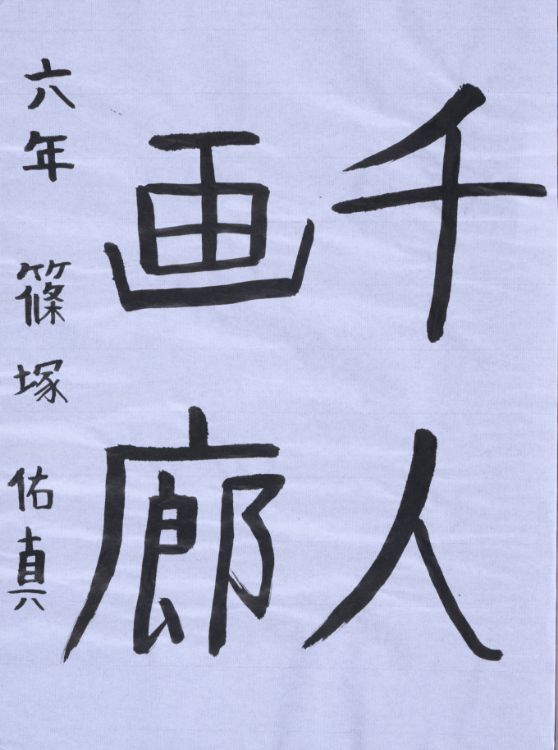 千人
画廊
六年 篠塚 佑真